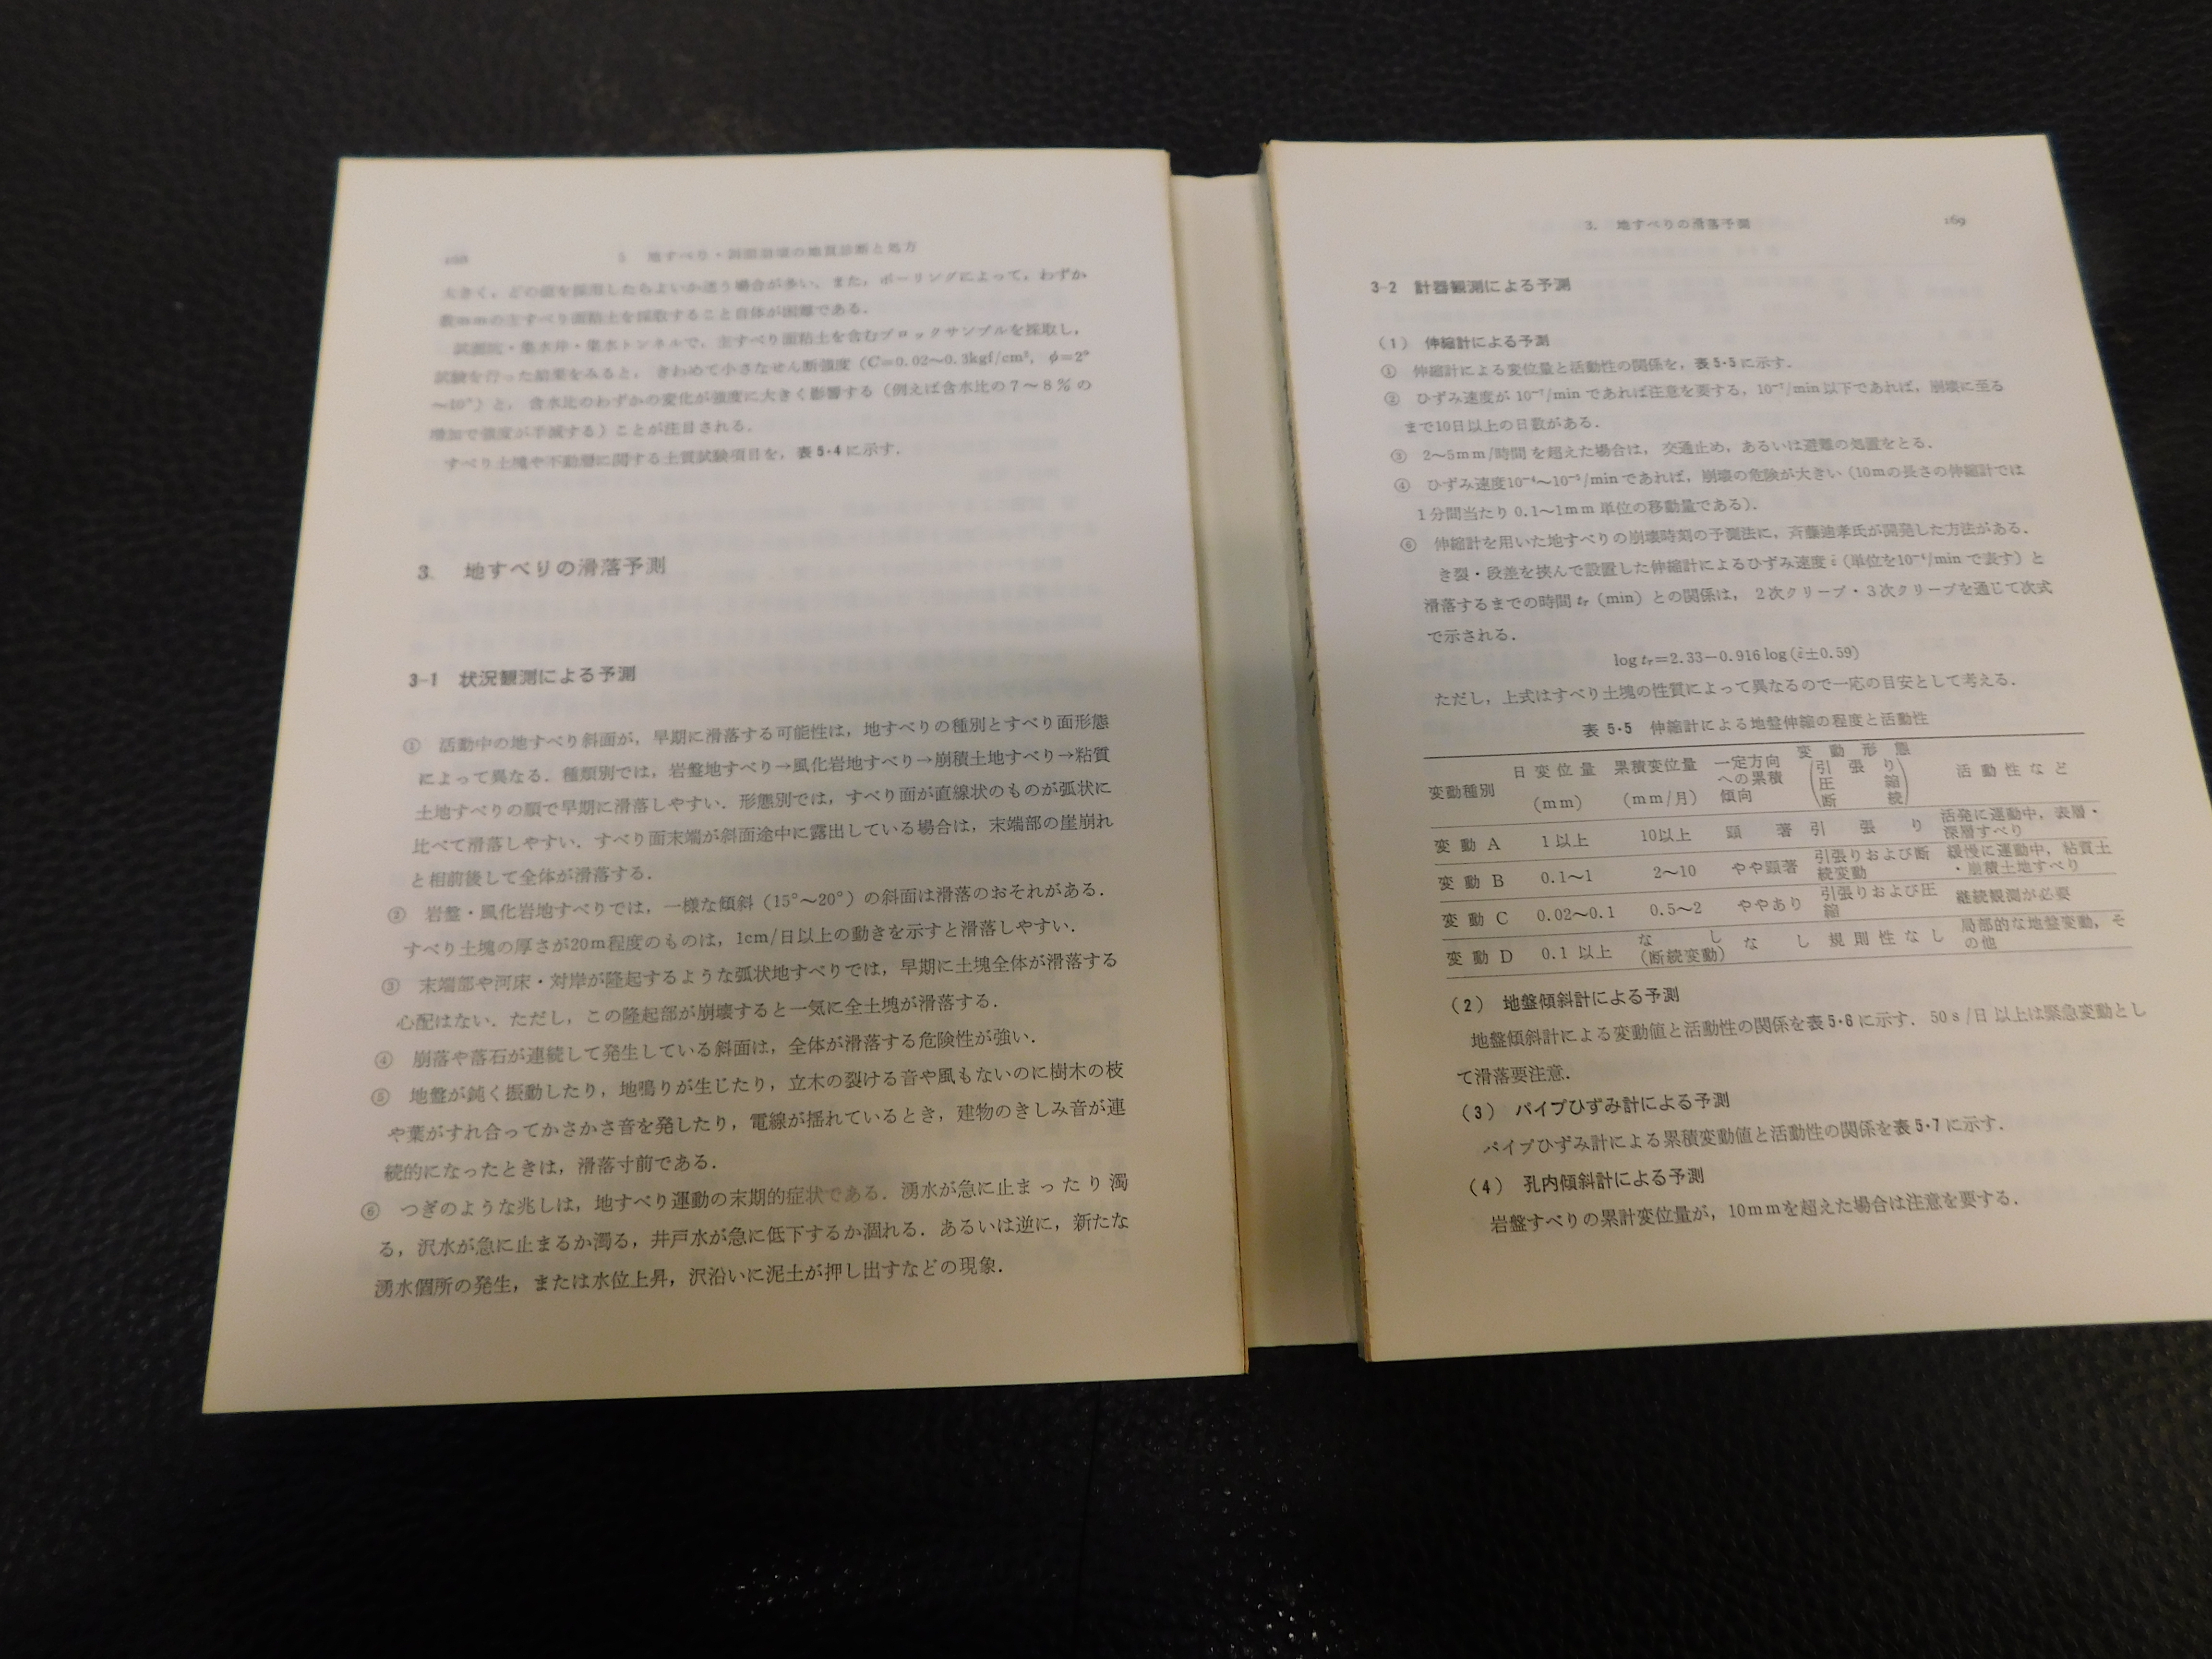 5 地すべり・斜面崩壊の地質診断と処方
大きく，どの値を採用したらよいか迷う場合が多い．また，ボーリングによって，わずか
数mmの主すべり面粘土を採取すること自体が困難である．
試掘坑・集水井・集水トンネルで，主すべり面粘土を含むブロックサンプルを採取し，
試験を行った結果をみると，きわめて小さなせん断強度（C=0.02〜0.3kgf/cm²，φ=2°
〜10°）と，含水比のわずかの変化が強度に大きく影響する（例えば含水比の7〜8％の
増加で強度が半減する）ことが注目される．
すべり土塊や不動層に関する土質試験項目を，表5・4に示す．
3. 地すべりの滑落予測
3-1 状況観測による予測
① 活動中の地すべり斜面が，早期に滑落する可能性は，地すべりの種別とすべり面形態
によって異なる．種類別では，岩盤地すべり→風化岩地すべり→崩積土地すべり→粘質
土地すべりの順で早期に滑落しやすい．形態別では，すべり面が直線状のものが弧状に
比べて滑落しやすい．すべり面末端が斜面途中に露出している場合は，末端部の崖崩れ
と相前後して全体が滑落する．
② 岩盤・風化岩地すべりでは，一様な傾斜（15°〜20°）の斜面は滑落のおそれがある．
すべり土塊の厚さが20m程度のものは，1cm/日以上の動きを示すと滑落しやすい．
③ 末端部や河床・対岸が隆起するような弧状地すべりでは，早期に土塊全体が滑落する
心配はない．ただし，この隆起部が崩壊すると一気に全土塊が滑落する．
④ 崩落や落石が連続して発生している斜面は，全体が滑落する危険性が強い．
⑤ 地盤が鈍く振動したり，地鳴りが生じたり，立木の裂ける音や風もないのに樹木の枝
や葉がすれ合ってかさかさ音を発したり，電線が揺れているとき，建物のきしみ音が連
続的になったときは，滑落寸前である．
⑥ つぎのような兆しは，地すべり運動の末期的症状である．湧水が急に止まったり濁
る，沢水が急に止まるか濁る，井戸水が急に低下するか涸れる．あるいは逆に，新たな
湧水個所の発生，または水位上昇，沢沿いに泥土が押し出すなどの現象．
3. 地すべりの滑落予測 169
3-2 計器観測による予測
（1） 伸縮計による予測
① 伸縮計による変位量と活動性の関係を，表5・5に示す．
② ひずみ速度が10⁻⁷/minであれば注意を要する，10⁻⁷/min以下であれば，崩壊に至る
まで10日以上の日数がある．
③ 2〜5mm/時間を超えた場合は，交通止め，あるいは避難の処置をとる．
④ ひずみ速度10⁻⁴〜10⁻⁵/minであれば，崩壊の危険が大きい（10mの長さの伸縮計では
1分間当たり0.1〜1mm単位の移動量である）．
伸縮計を用いた地すべりの崩壊時刻の予測法に，斉藤迪孝氏が開発した方法がある．
き裂・段差を挟んで設置した伸縮計によるひずみ速度ε̇（単位を10⁻⁴/minで表す）と
滑落するまでの時間tr（min）との関係は，2次クリープ・3次クリープを通じて次式
で示される．
log tr=2.33−0.916 log(ε̇±0.59)
ただし，上式はすべり土塊の性質によって異なるので一応の目安として考える．
表5・5 伸縮計による地盤伸縮の程度と活動性
変動種別 日変位量（mm） 累積変位量（mm/月） 一定方向への累積傾向 変動形態（引張り 圧縮 断続） 活動性など
変動A 1以上 10以上 顕著 引張り 活発に運動中，表層・深層すべり
変動B 0.1〜1 2〜10 やや顕著 引張りおよび断続変動 緩慢に運動中，粘質土・崩積土地すべり
変動C 0.02〜0.1 0.5〜2 ややあり 引張りおよび圧縮 継続観測が必要
変動D 0.1以上 なし（断続変動） なし 規則性なし 局部的な地盤変動，その他
（2） 地盤傾斜計による予測
地盤傾斜計による変動値と活動性の関係を表5・6に示す．50s/日以上は緊急変動とし
て滑落要注意．
（3） パイプひずみ計による予測
パイプひずみ計による累積変動値と活動性の関係を表5・7に示す．
（4） 孔内傾斜計による予測
岩盤すべりの累計変位量が，10mmを超えた場合は注意を要する．